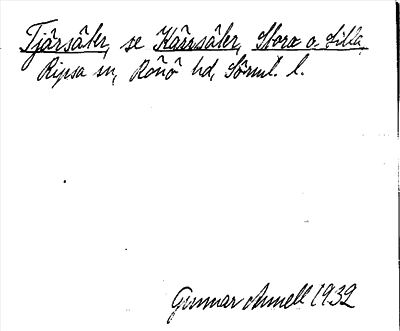 Tjärsäter, se Kärrsäter, Stora o. Lilla,
Ripsa sn, Rönö hd, Sörml. l.
Gunnar Arnell 1932